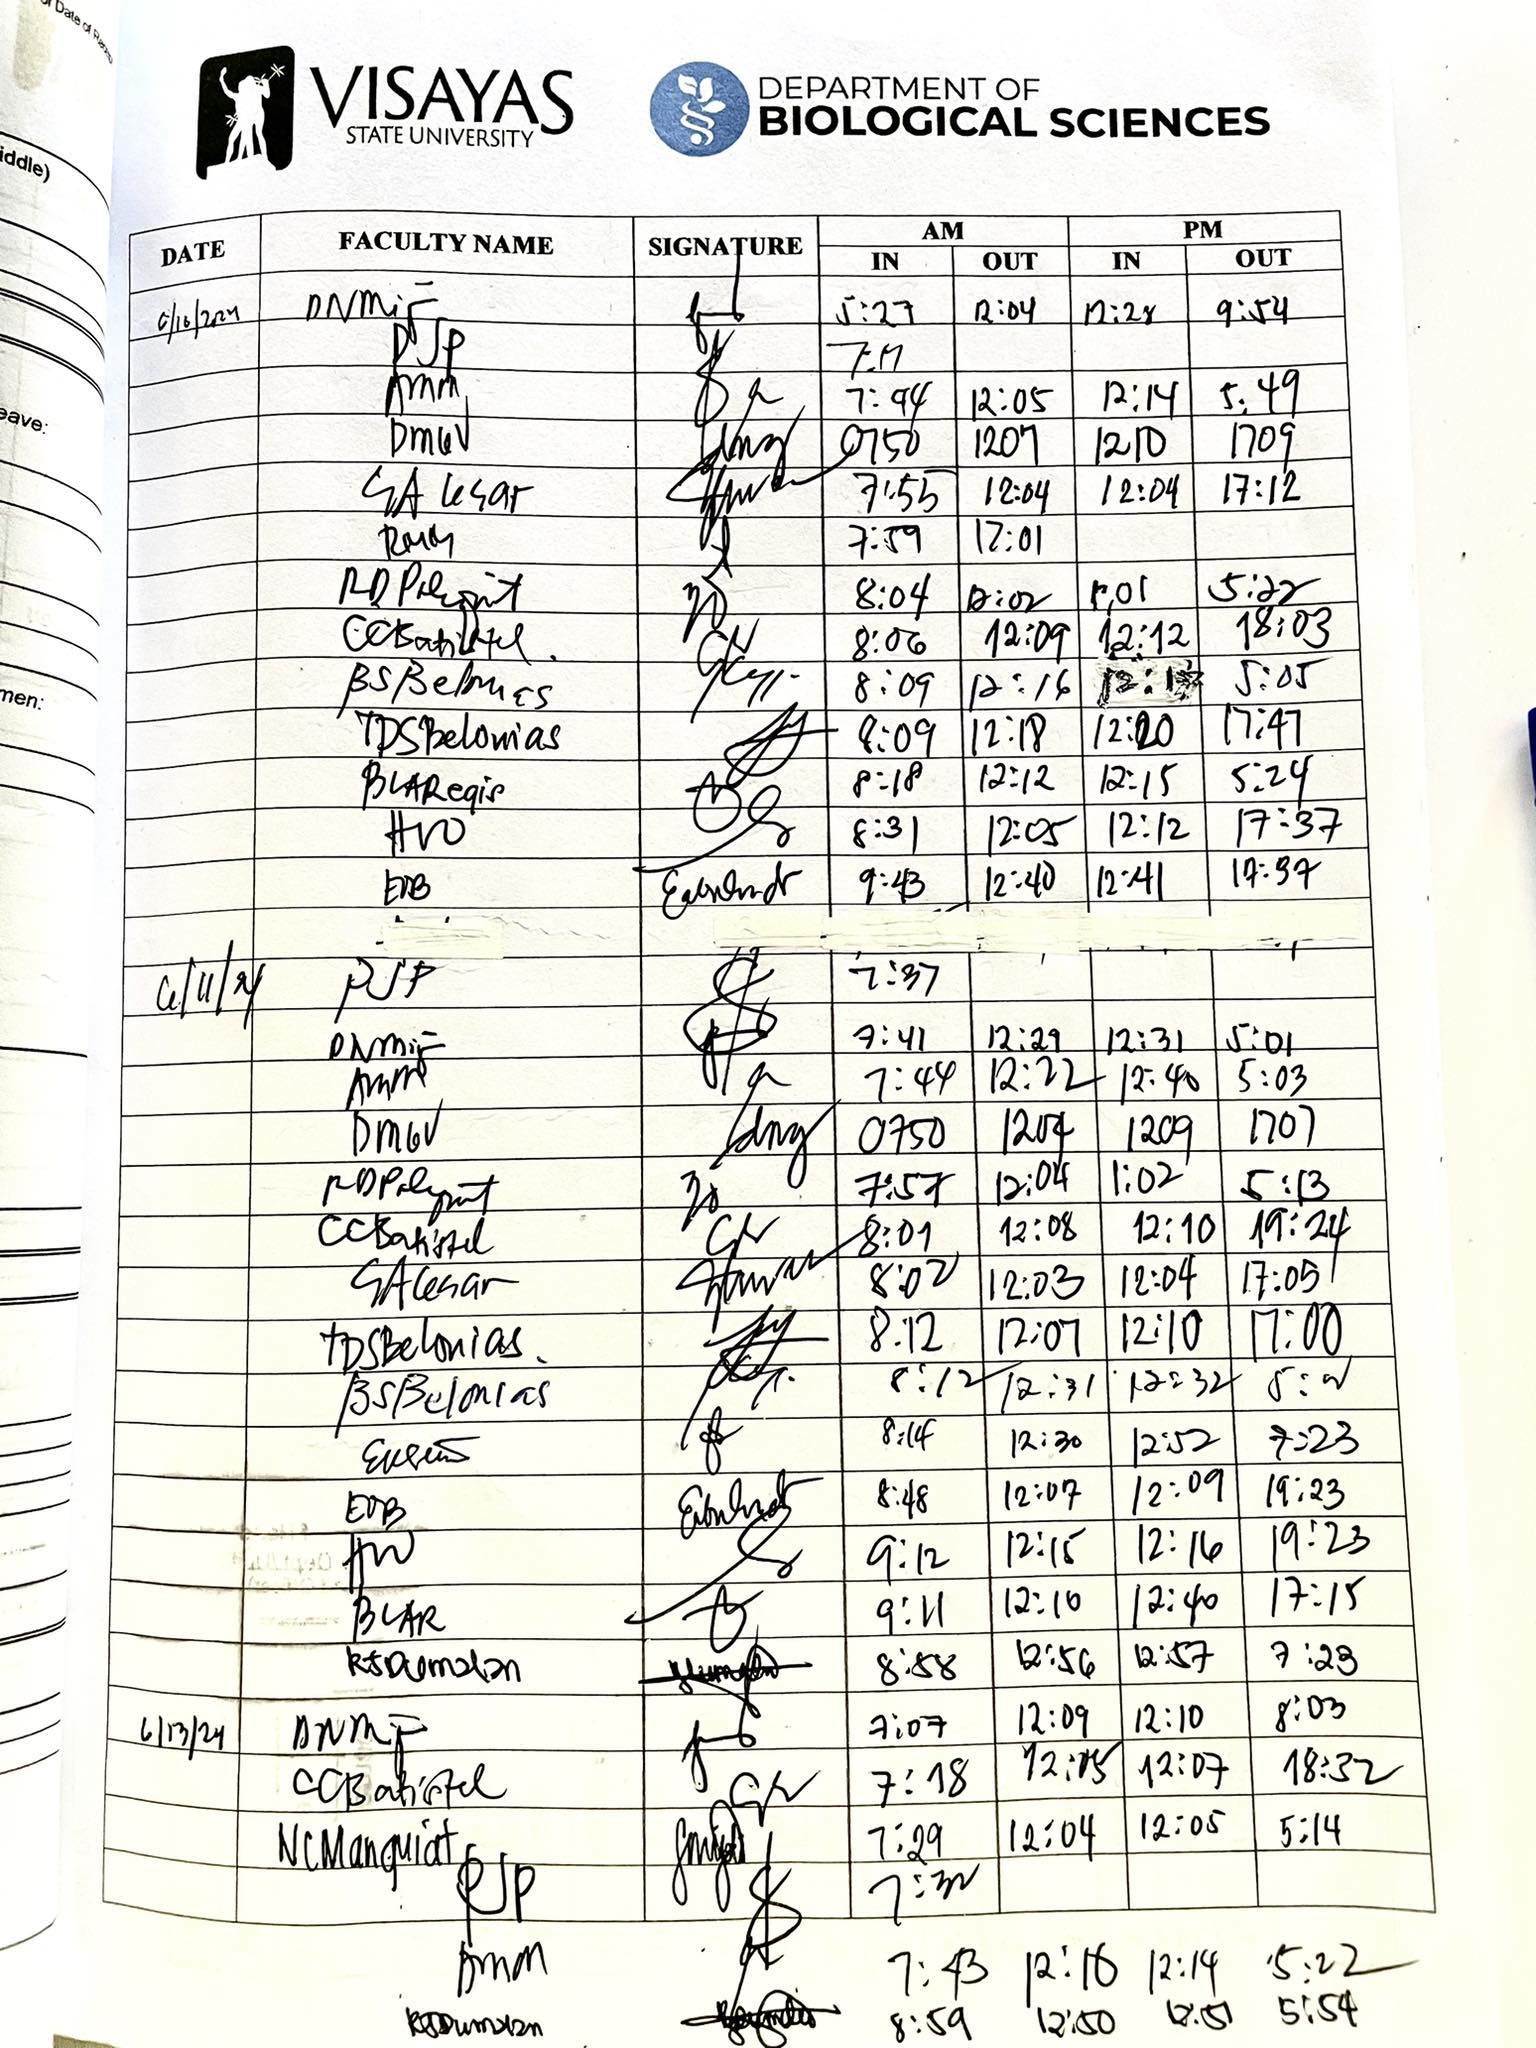 of Date of
iddle)
eave:
men:
VISAYAS
STATE UNIVERSITY
DEPARTMENT OF
BIOLOGICAL SCIENCES
DATE FACULTY NAME SIGNATURE AM PM
IN OUT IN OUT
6/10/2024 DNMij 5:27 12:04 12:28 9:54
PJP 7:17
AMM 7:44 12:05 12:14 5:49
DMGV 0750 1207 1210 1709
GA Cesar 7:55 12:04 12:04 17:12
RMM 7:59 12:01
8:04 12:02 1:01 5:22
CCBatistel. 8:06 12:09 12:12 18:03
BSBelonias 8:09 12:16 5:05
TDSBelonias 8:09 12:18 12:20 17:47
BLARegis 8:18 12:12 12:15 5:24
HVO 8:31 12:05 12:12 17:37
EDB 9:43 12:40 12:41 17:37
6/11/24 PJP 7:37
DNMij 7:41 12:29 12:31 5:01
AMM 7:44 12:22 12:40 5:03
DMGV 0750 1204 1209 1707
7:57 12:04 1:02 5:13
CCBatistel 8:01 12:08 12:10 19:24
GACesar 8:02 12:03 12:04 17:05
TDSBelonias. 8:12 12:07 12:10 17:00
BSBelonias 8:12 12:31 12:32
8:14 12:30 12:52 7:23
EDB 8:48 12:07 12:09 19:23
HVO 9:12 12:15 12:16 19:23
BLAR 9:11 12:10 12:40 17:15
RSDumalan 8:58 12:56 12:57 7:23
6/13/24 DNMij 7:07 12:09 12:10 8:03
CCBatistel 7:18 12:05 12:07 18:32
NCManquiat 7:29 12:04 12:05 5:14
PJP 7:32
AMM 7:43 12:10 12:14 5:22
RSDumalan 8:59 12:50 12:51 5:54